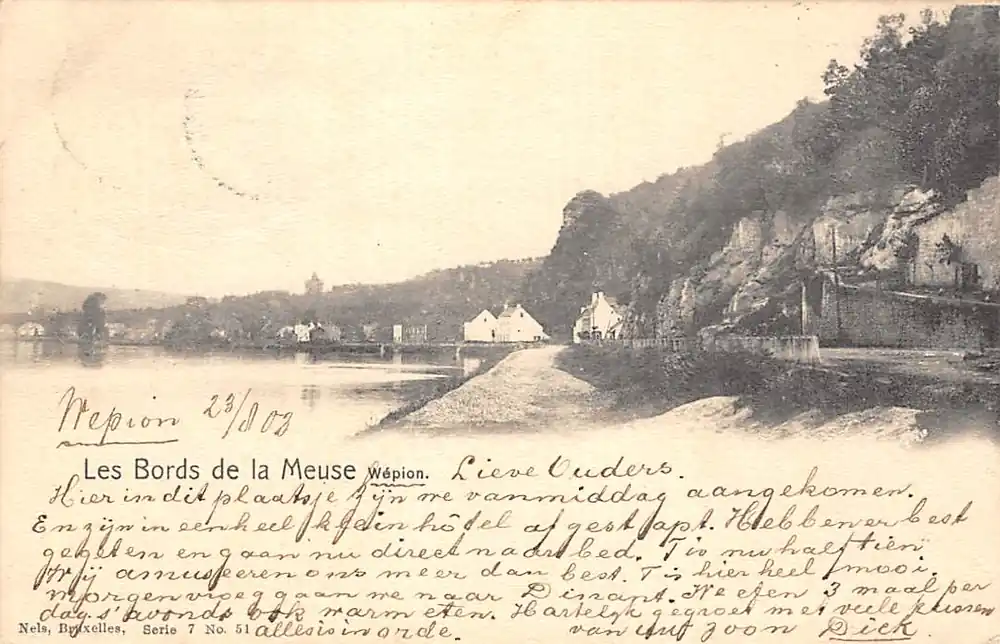 Wepion 23/8 03
Les Bords de la Meuse Wépion. Lieve Ouders.
Hier in dit plaatsje zijn we vanmiddag aangekomen.
En zijn in een heel klein hôtel afgestapt. Hebben er best
gegeten en gaan nu direct naar bed. 't is nu half tien.
Wij amuseeren ons meer dan best. 't is hier heel mooi.
Morgen vroeg gaan we naar Dinant. We eten 3 maal per
dag. s'avonds ook warm eten. Hartelijk gegroet met vele kussen
Nels, Bruxelles, Serie 7 No. 51 alles is in orde. van uw zoon Dick